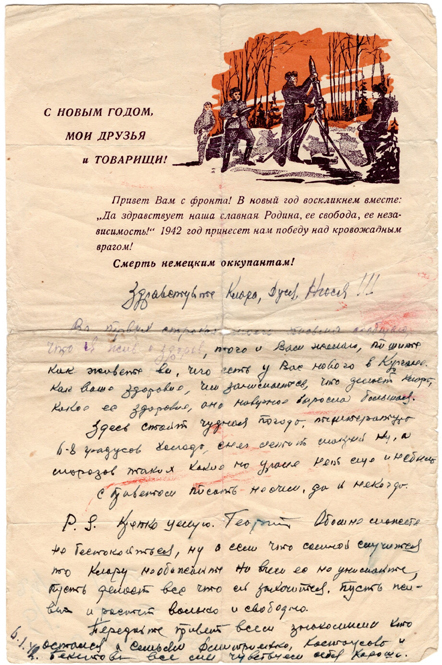 С НОВЫМ ГОДОМ,
МОИ ДРУЗЬЯ
и ТОВАРИЩИ!
Привет Вам с фронта! В новый год воскликнем вместе:
„Да здравствует наша славная Родина, ее свобода, ее неза-
висимость!“ 1942 год принесет нам победу над кровожадным
врагом!
Смерть немецким оккупантам!
Здравствуйте Клара, Дуся, Нюся!!!
В первых строках моего письма сообщаю,
что я жив и здоров, того и Вам желаю, пишите
как живете вы, что есть у Вас нового в
Как ваше здоровье, чем занимаетесь, что делает
какое ее здоровье, она наверное выросла большая.
Здесь стоит чудная погода, температура
6-8 градусов холода, снег ну, а
морозов таких какие на Урале нет еще и не было
с приветом писать не о чем, да и некогда.
P. S. Крепко целую. Георгий Обо мне можете
не беспокойтесь, ну а если что со мной случится
то Клару не обвиняйте ни в чем ее не унижайте,
пусть делает все что ей захочется. Пусть
и растет вольно и свободно.
Передайте привет всем знакомым кто
остался с